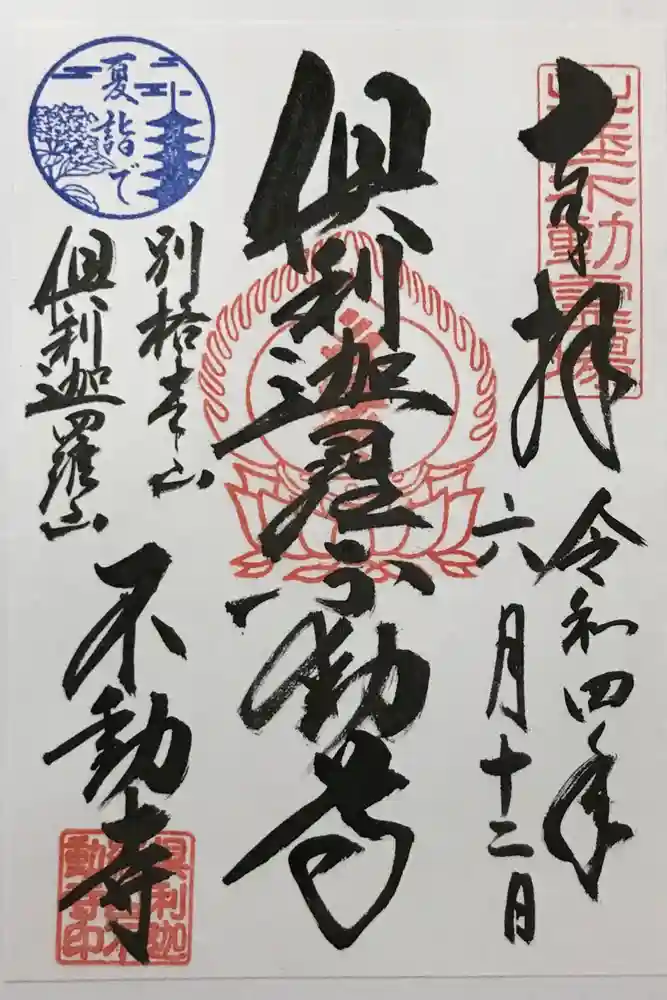 奉拝
北陸不動霊場
令和四年
六月十二日
倶利迦羅不動尊
夏詣で
別格本山
倶利迦羅山
不動寺
倶利迦
動寺印